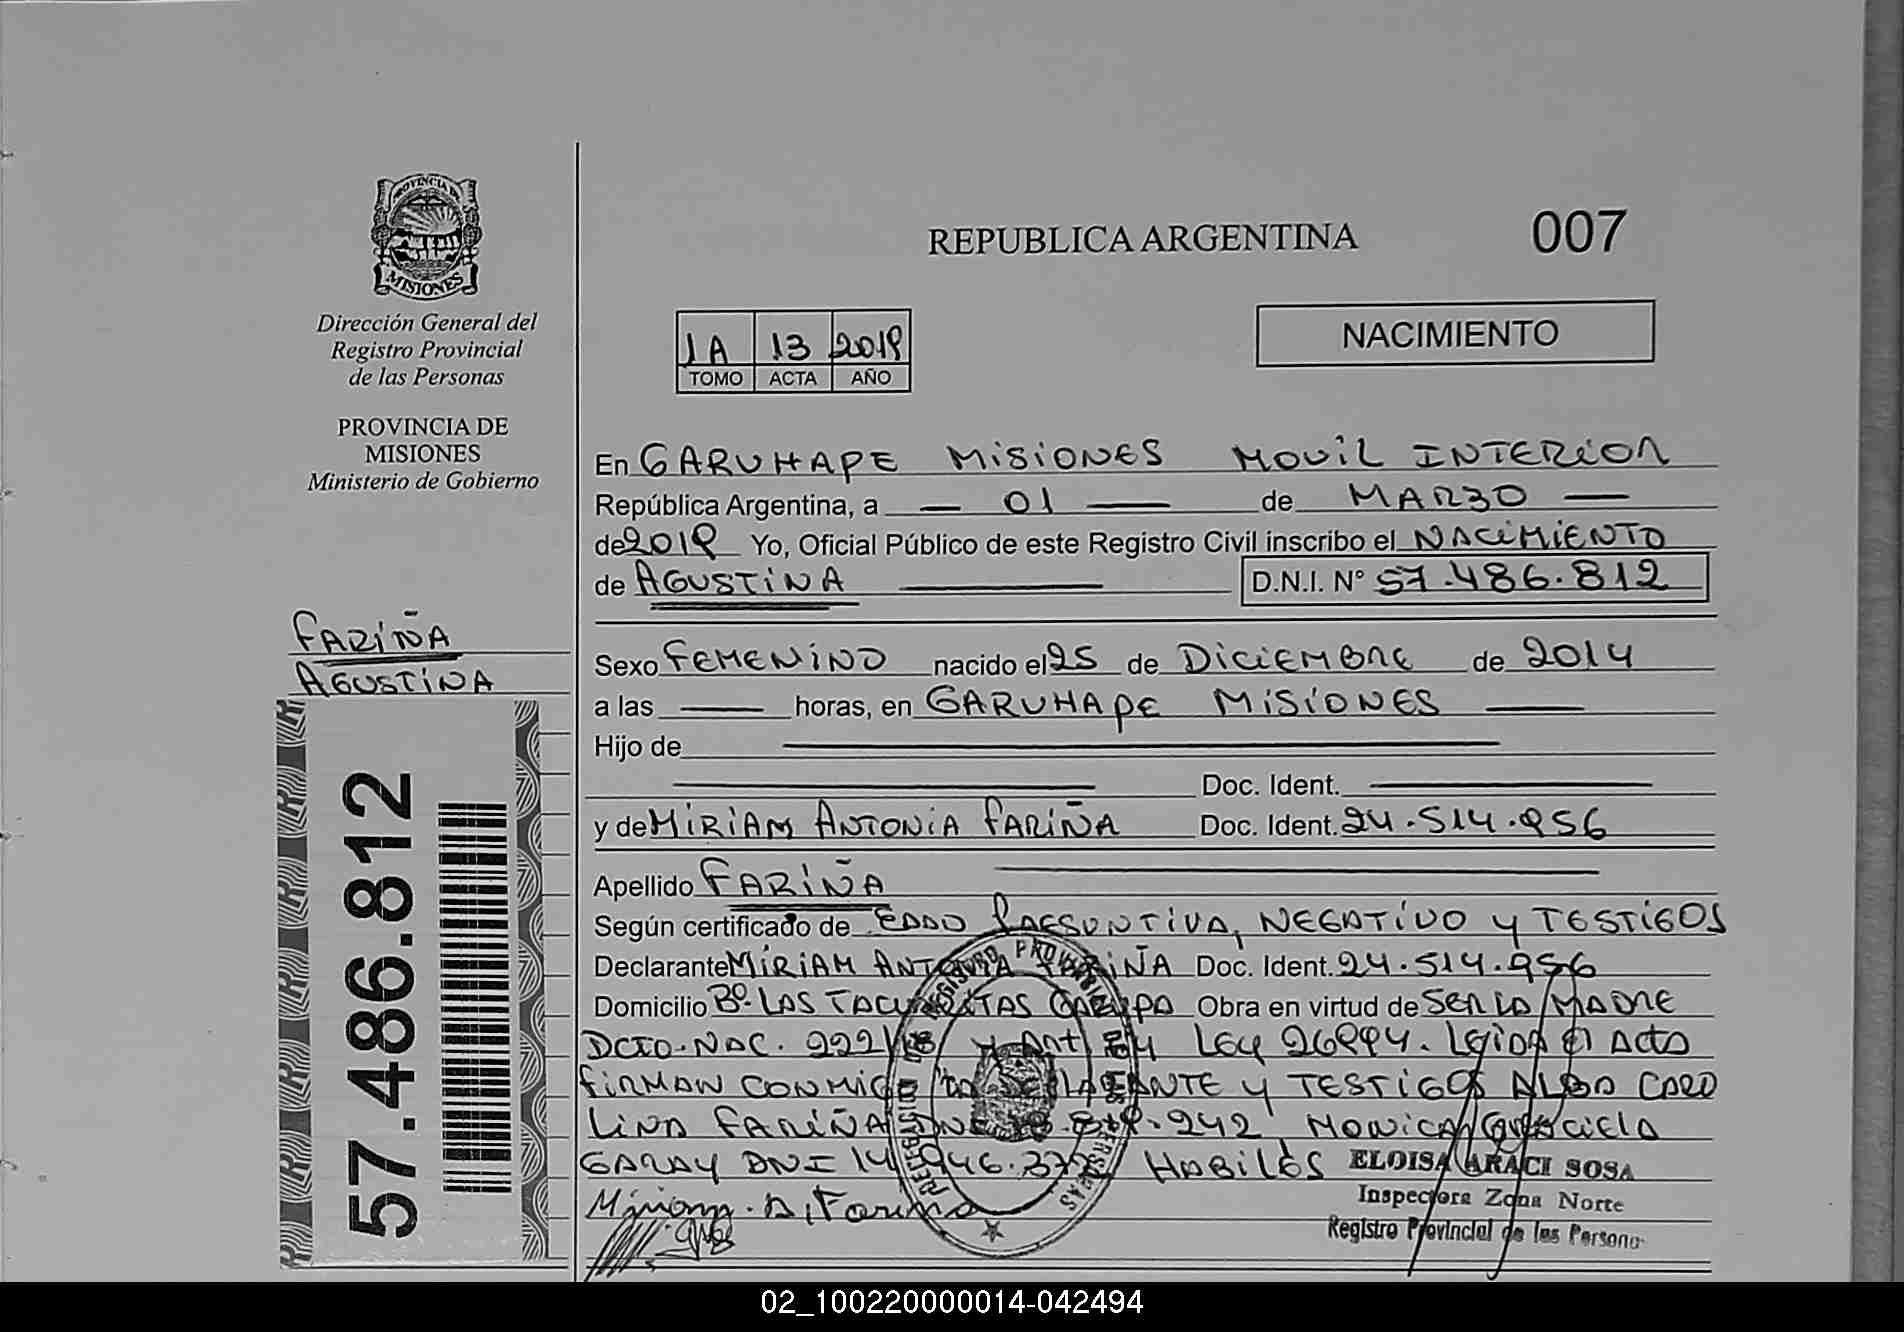 PROVINCIA DE
MISIONES
Dirección General del
Registro Provincial
de las Personas
PROVINCIA DE
MISIONES
Ministerio de Gobierno
FARIÑA
AGUSTINA
57.486.812
REPUBLICA ARGENTINA
007
1A 13 2019
TOMO ACTA AÑO
NACIMIENTO
En GARUHAPE MISIONES MOVIL INTERIOR
República Argentina, a — 01 — de MARZO —
de 2019 Yo, Oficial Público de este Registro Civil inscribo el NACIMIENTO
de AGUSTINA — D.N.I. N° 57.486.812
Sexo FEMENINO nacido el 25 de DICIEMBRE de 2014
a las — horas, en GARUHAPE MISIONES —
Hijo de —
— Doc. Ident. —
y de MIRIAM ANTONIA FARIÑA Doc. Ident. 24.514.956
Apellido FARIÑA —
Según certificado de EDAD PRESUNTIVA, NEGATIVO y TESTIGOS
Declarante MIRIAM ANTONIA FARIÑA Doc. Ident. 24.514.956
Domicilio Bº LAS TACUARITAS Obra en virtud de SER LA MADRE
DCTO. NAC. 222/ y Art LEY 26994. Leida el Acta
FIRMAN CONMIGO LA DECLARANTE y TESTIGOS ALBA CARO
LINA FARIÑA DNI 242, MONICA GRACIELA
GARAY DNI 14 HABILES ELOISA ARACI SOSA
Inspectora Zona Norte
Miriam A. Fariña Registro Provincial de las Persona
02_100220000014-042494